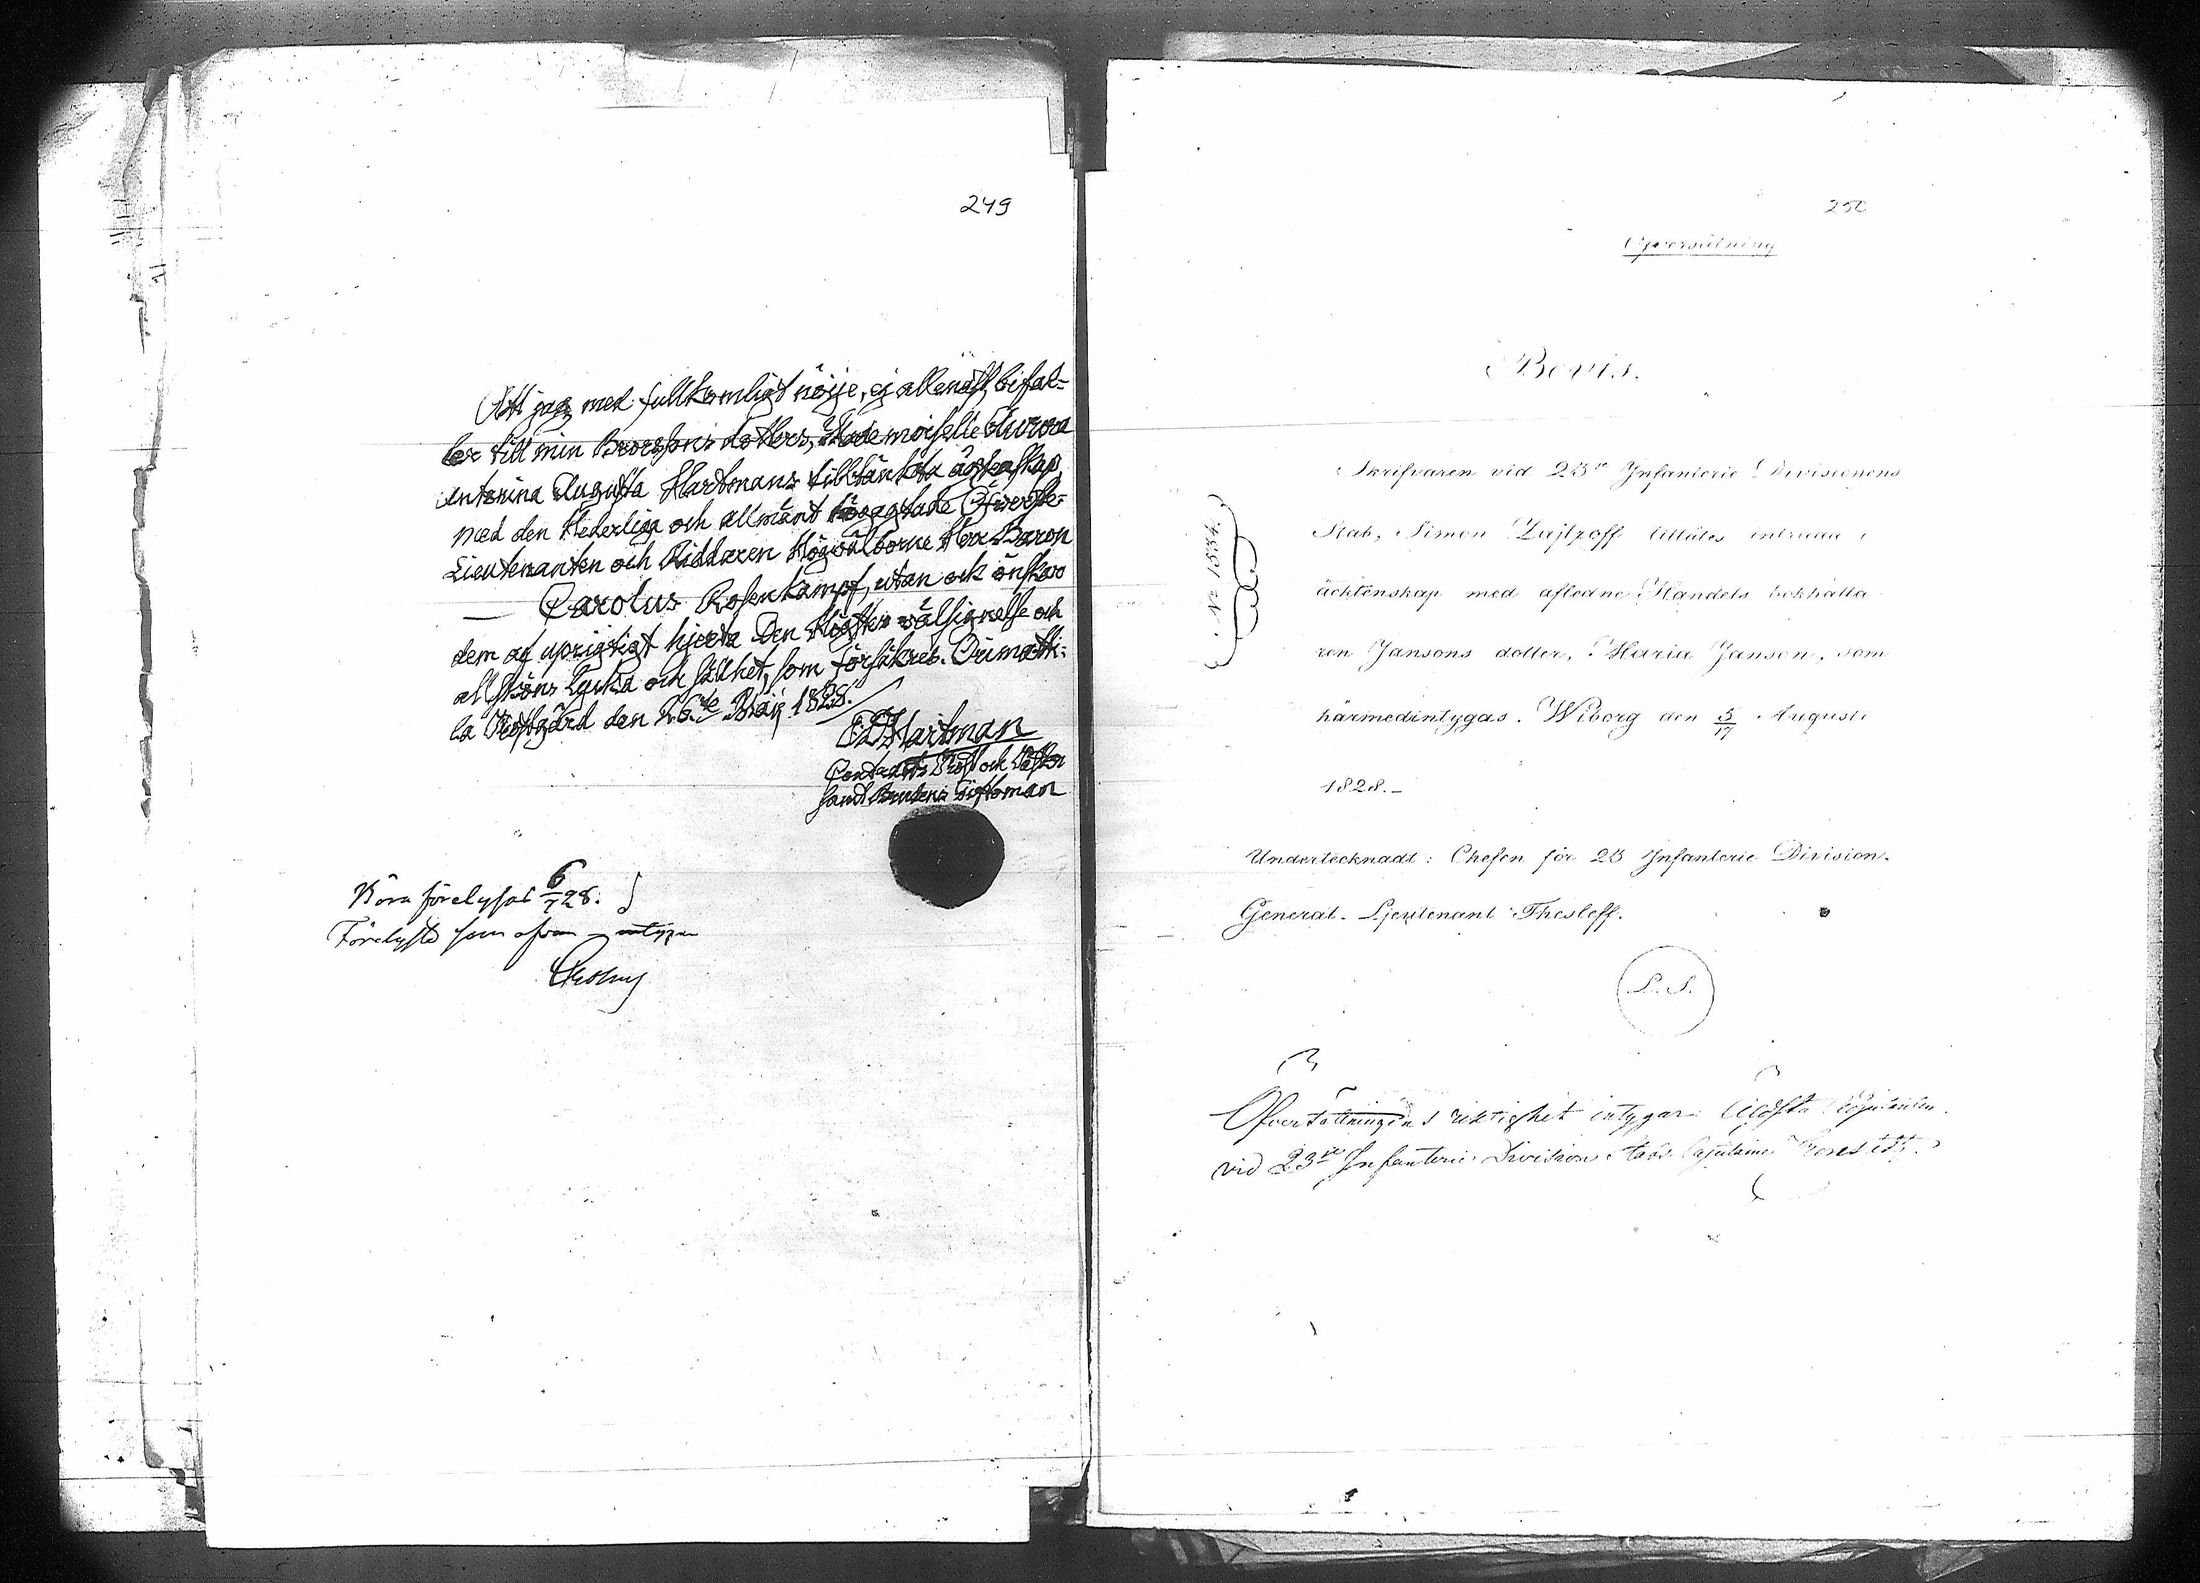 249
Att jag med fullkomligt nöije, ej allenast, bifal-
ler till min Brorsons dotters, Mademoiselle Aurora
Antonina Augusta Hartmans tilltänkta ägtenskap,
med den Hederliga och allmänt högagtade Öfverste-
Lieutenanten och Riddaren Högvälborne Herr Baron
Carolus Rosenkampf, utan ock önskar
dem af uprigtigt hjerta Den Högstes välsignelse och
all sköns lycka och sällhet, som försäkres. Orimatti-
la Prostgård den 26de Maij 1828.
Hartman
Contracts Prost och Pastor
samt Brudens Giftoman
6/7 28.
Förelyste som ofvan intygar
250
Öfversätning
Bevis.
Skrifvaren vid 23e Infanterie Divisionens
Stab, Simon Zajtzoff tillåtes inträda i
äcktenskap med afledne Handels bokhålla
ren Jansons dotter, Maria Janson, som
härmedintygas. Wiborg den 5/17 Augusti
1828.-
No 1534.
Undertecknadt: Chefen för 23 Infanterie Division.
General-Ljeutenant Thesleff.
L.S.
Öfversättningens riktighet intygar Äldsta Adjutanten
vid 23de Infanterie Division Stabs Capitaine